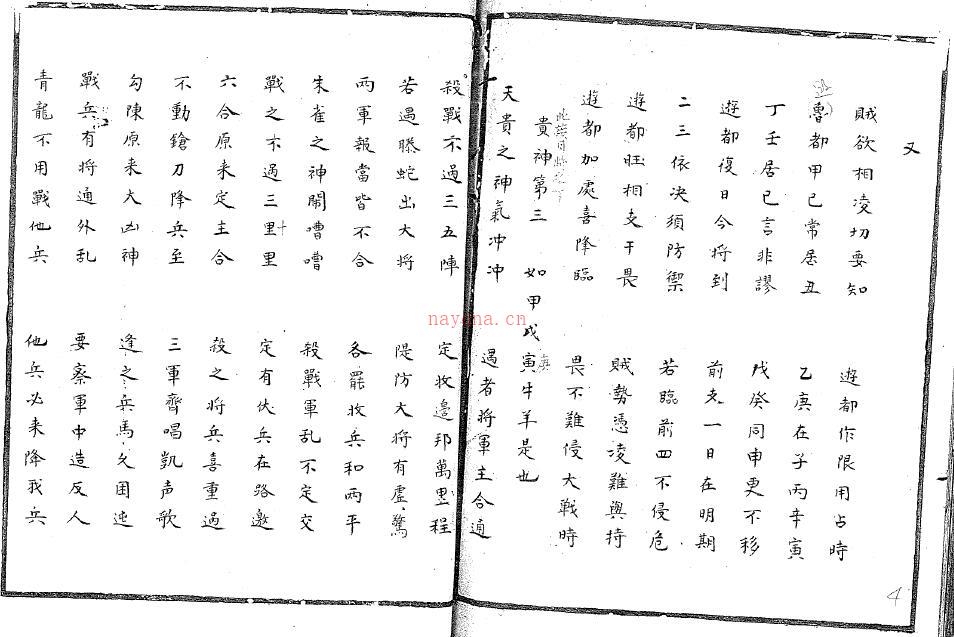 又
賊欲相凌切要知 遊都作限用占時
魯都甲己常居丑 乙庚在子丙辛寅
丁壬居巳言非謬 戊癸同申更不移
遊都復日今將到 前支一日在明期
二三依决須防禦 若臨前四不侵危
遊都旺相支干畏 賊勢憑凌難與持
遊都加處喜降臨 畏不難侵大戰時
貴神第三 如甲戌寅牛羊是也
天貴之神氣冲冲 遇者將軍主合通
殺戰不過三五陣 定收邊邦萬里程
若遇螣蛇出大將 隄防大將有虛驚
两軍報當皆不合 各罷收兵和两平
朱雀之神鬧嘈嘈 殺戰軍乱不定交
戰之不過三里里 定有伏兵在路邀
十
六合原来定主合 殺之將兵喜重過
不動鎗刀降兵至 三軍齊唱凱声歌
勾陳原来大凶神 逢之兵馬久困迍
戰兵有將通外乱 要察軍中造反人
青龍不用戰他兵 他兵必来降我兵
nayona.cn
4